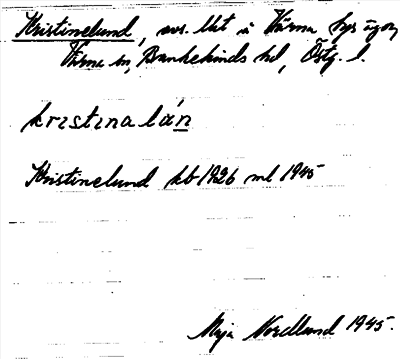 Kristinelund, avs. lht å Värna kyrs ägor,
Värna sn, Bankekinds hd, Östg. l.
kristinalán
Kristinelund kb 1926 ml 1945
Maja Nordlund 1945.